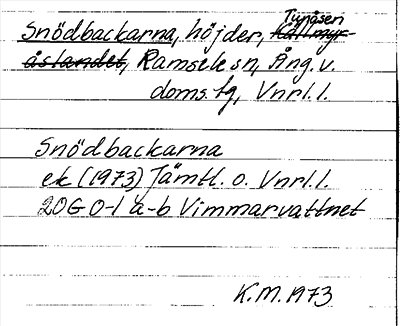 Tunåsen
Snödbackarna, höjder, Källmyr-
åslandet, Ramsele sn, Ång. v.
doms. fg, Vnrl. l.
Snödbackarna
ek (1973) Jämtl. o. Vnrl. l.
20G 0-1 a-b Vimmarvattnet
K.M. 1973